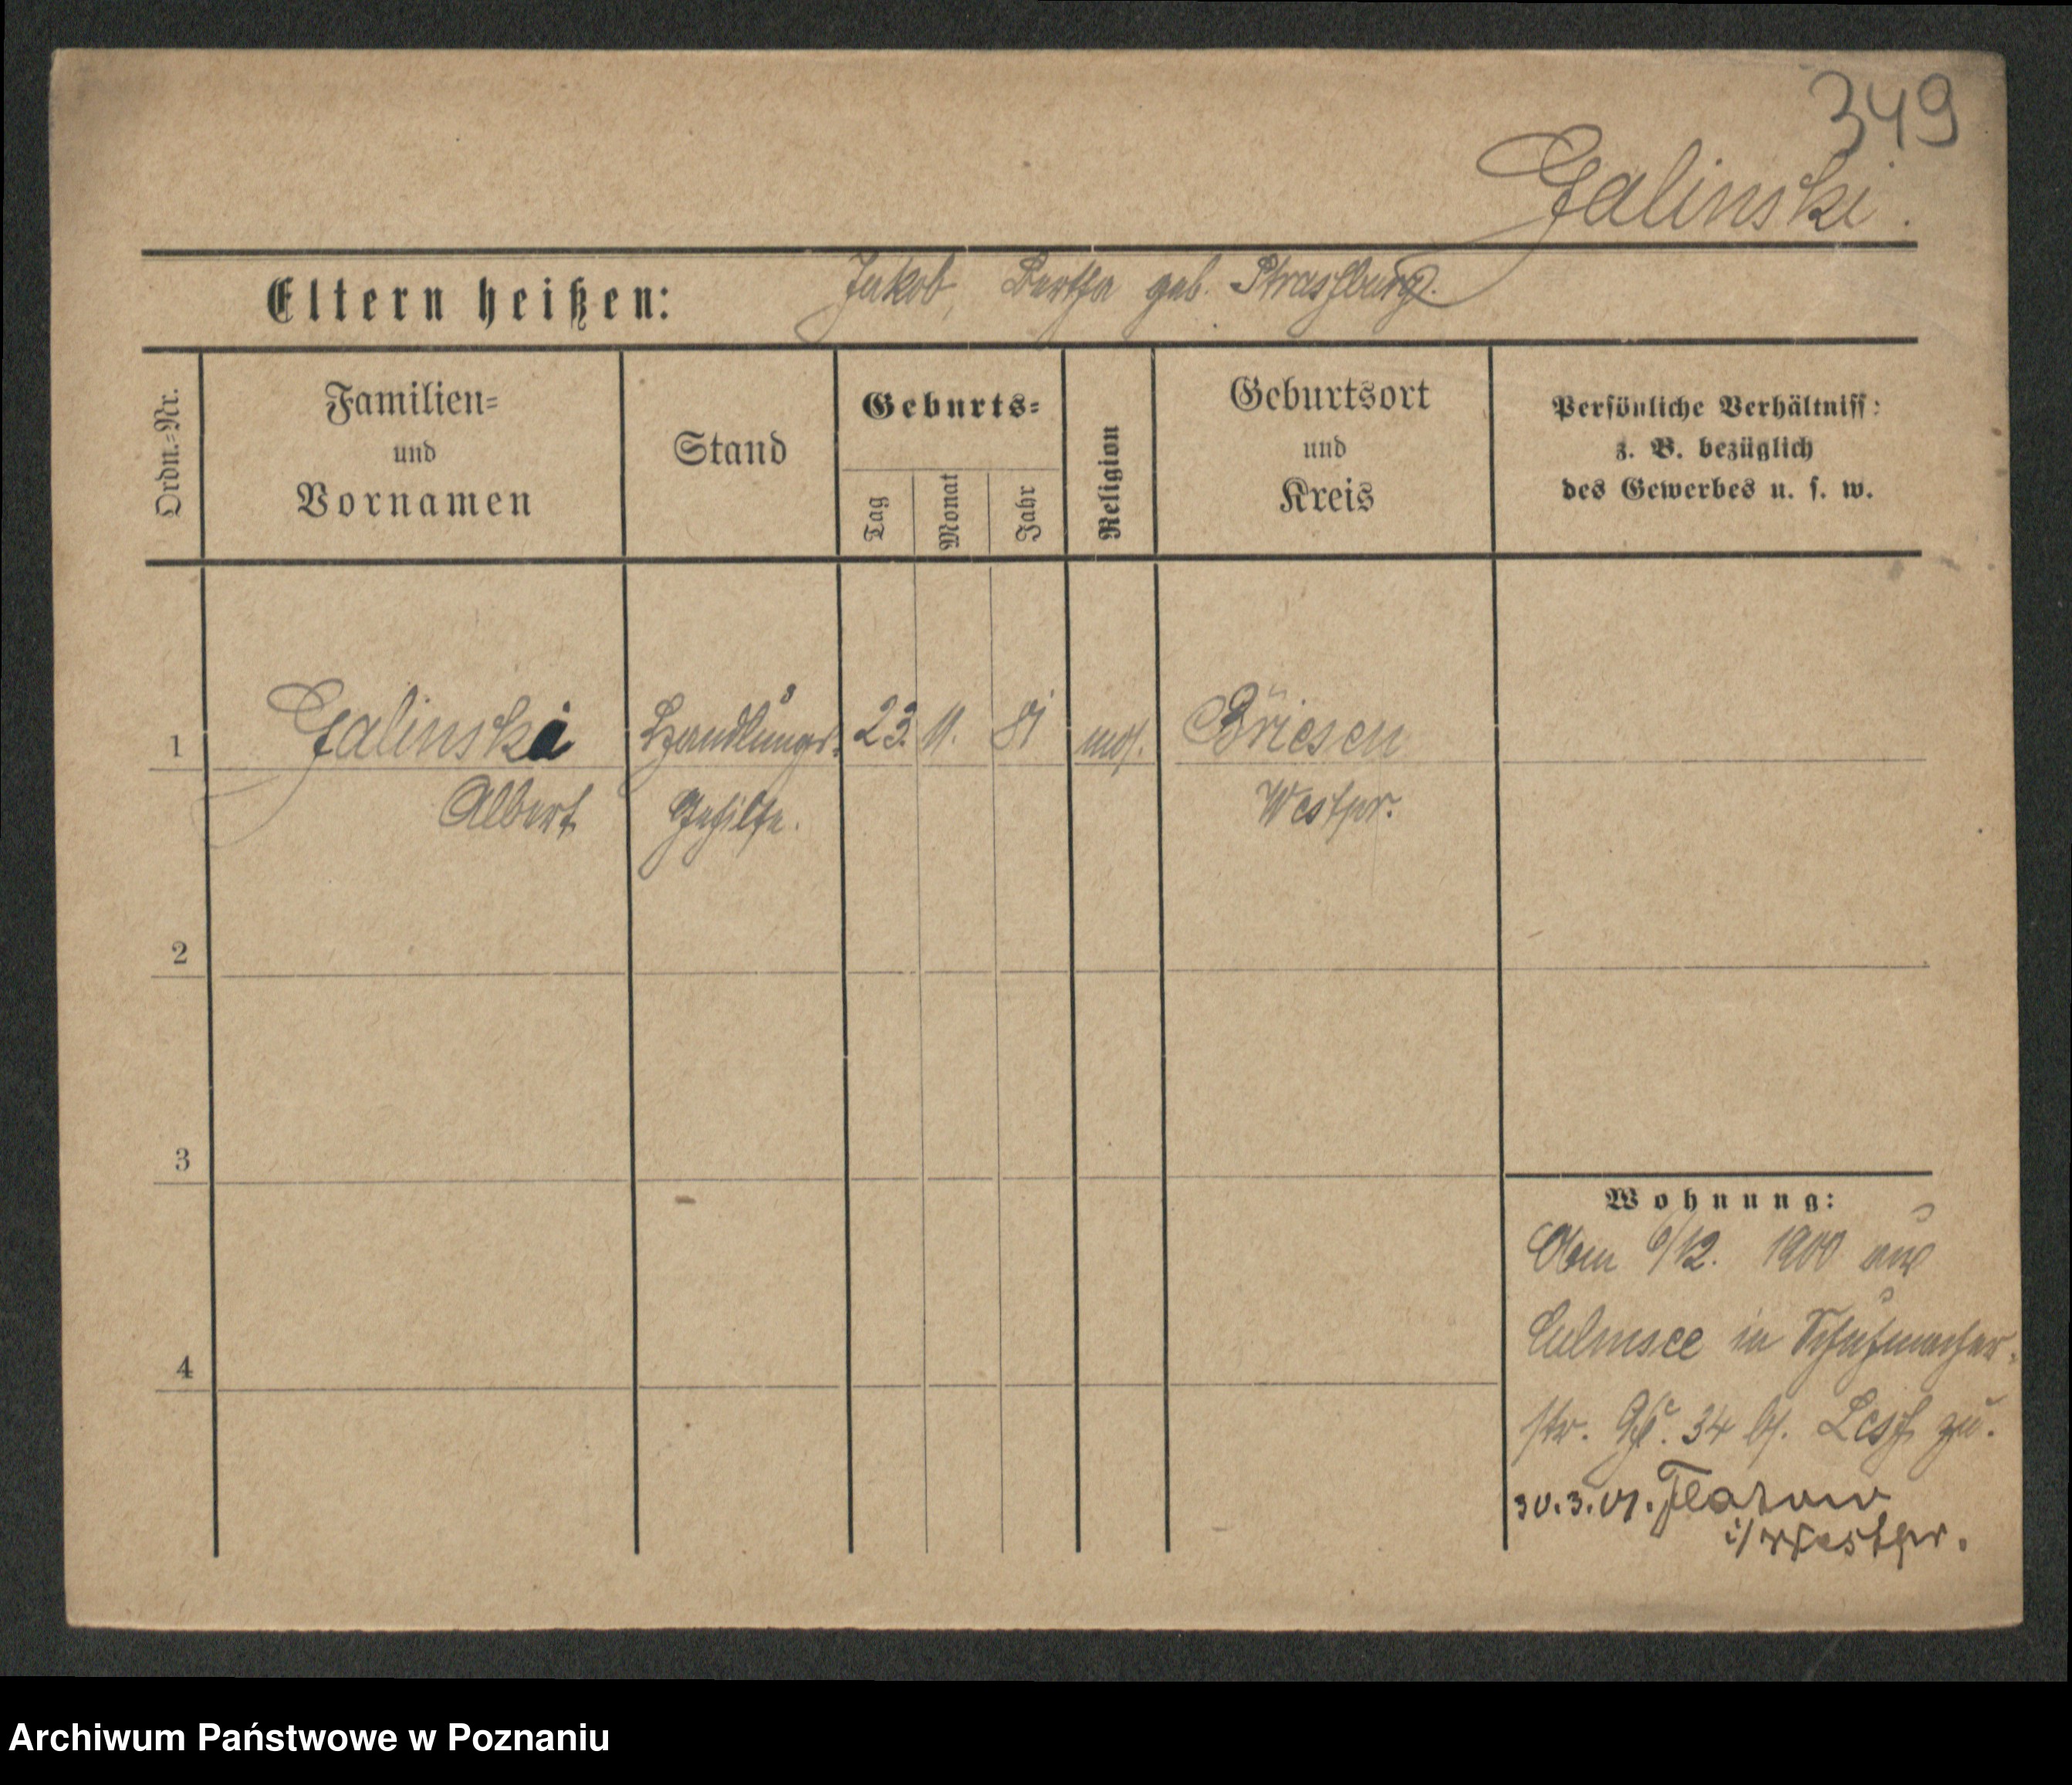 349
Galinski.
Eltern heißen: Jakob, Bertha geb. Strassburg.
Ordn.-Nr.
Familien-
und
Vornamen
Stand
Geburts-
Tag
Monat
Jahr
Religion
Geburtsort
und
Kreis
Persönliche Verhältniss:
z. B. bezüglich
des Gewerbes u. s. w.
1 Galinski Handlungs- 23. 11. 81 mos. Briesen
Albert Gehilfe. Westpr.
2
3
4
Wohnung:
Am 6/12. 1900 aus
Culmsee in Schuhmacher-
str. 34 bei zu.
30.3.01. Flatow
i/Westpr.
Archiwum Państwowe w Poznaniu